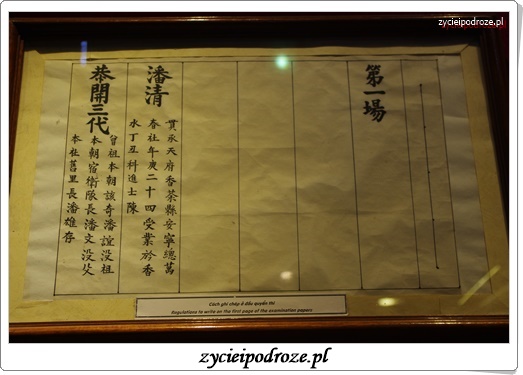 zycieipodroze.pl
第一場
潘清
貫承天府香茶縣安寧總萬
春社年庚二十四受業於香
水丁丑科進士陳
恭開三代
曾祖本朝該奇潘誼没祖
本朝宿衛隊長潘文没父
本社舊里長潘雄存
Cách ghi chép ở đầu quyển thi
Regulations to write on the first page of the examination papers
zycieipodroze.pl